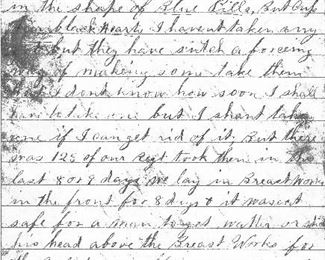 in the shape of Blue Pills, But Our
black Hearts. I havent taken any
but they have sutch a forceing
way of makeing some take them
I dont know how soon I shall
have to like one but I shant take
one if I can get rid of it. But there
was 125 of our Regt took them in the
last 8 or 9 days we lay in Breast works
in the front for 8 days & it wascat
safe for a man to get watter or stick
his head above the Breast Works for